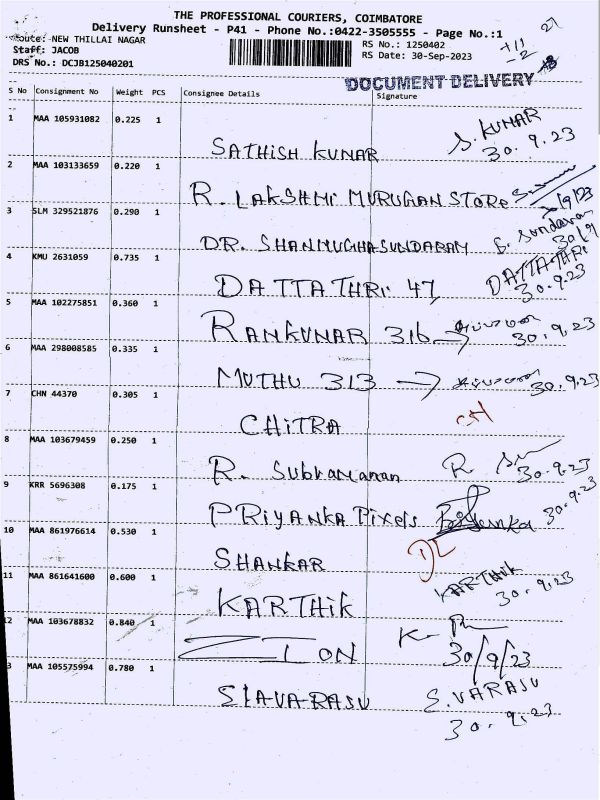 THE PROFESSIONAL COURIERS, COIMBATORE
Delivery Runsheet - P41 - Phone No.:0422-3505555 - Page No.:1
Route: NEW THILLAI NAGAR
Staff: JACOB
DRS No.: DCJB125040201
RS No.: 1250402
RS Date: 30-Sep-2023
27
+11
-2
DOCUMENT DELIVERY
S No Consignment No Weight PCS Consignee Details Signature
1 MAA 105931082 0.225 1 SATHISH KUNAR S. KUNAR 30.9.23
2 MAA 103133659 0.220 1 R. LAKSHMI MURUGAN STORE
3 SLM 329521876 0.290 1 DR. SHANMUGHASUNDARAM S. Sundaram 30/9
4 KMU 2631059 0.735 1 DATTATHRI 47 DATTATHRI 30.9.23
5 MAA 102275851 0.360 1 RANKUNAR 316 → 30.9.23
6 MAA 298008585 0.335 1 MUTHU 313 → 30.9.23
7 CHN 44370 0.305 1 CHITRA
8 MAA 103679459 0.250 1 R. Subramanan R 30.9.23
9 KRR 5696308 0.175 1 PRIYANKA Pixels Priyanka 30.9.23
10 MAA 861976614 0.530 1 SHANKAR DL
11 MAA 861641600 0.600 1 KARTHIK KARTHIK 30.9.23
12 MAA 103678832 0.840 1 ZION K. 30/9/23
13 MAA 105575994 0.780 1 SIAVARASU S.VARASU 30.9.23